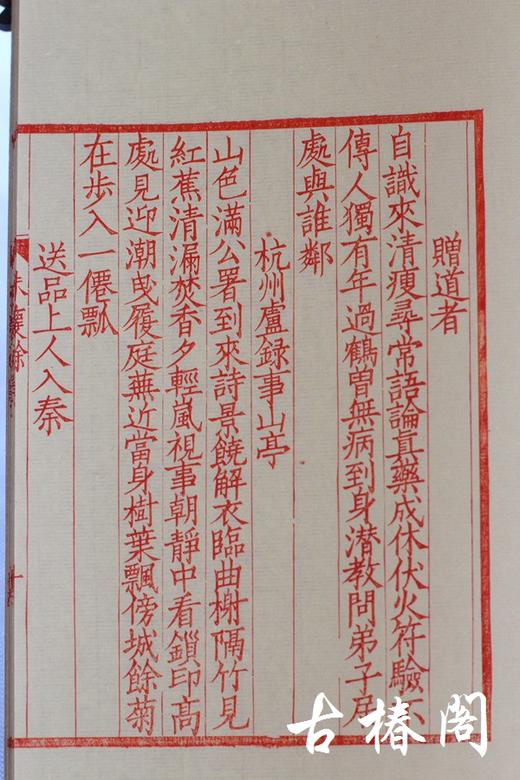 贈道者
自識來清瘦尋常語論真藥成休伏火符驗不
傳人獨有年過鶴曽無病到身潜教問弟子居
處與誰鄰
杭州盧録事山亭
山色滿公署到來詩景饒解衣臨曲榭隔竹見
紅蕉清漏焚香夕輕嵐視事朝靜中看鎖印高
處見迎潮曳履庭蕪近當身樹葉飄傍城餘菊
在步入一僊瓢
送品上人入秦
古椿閣